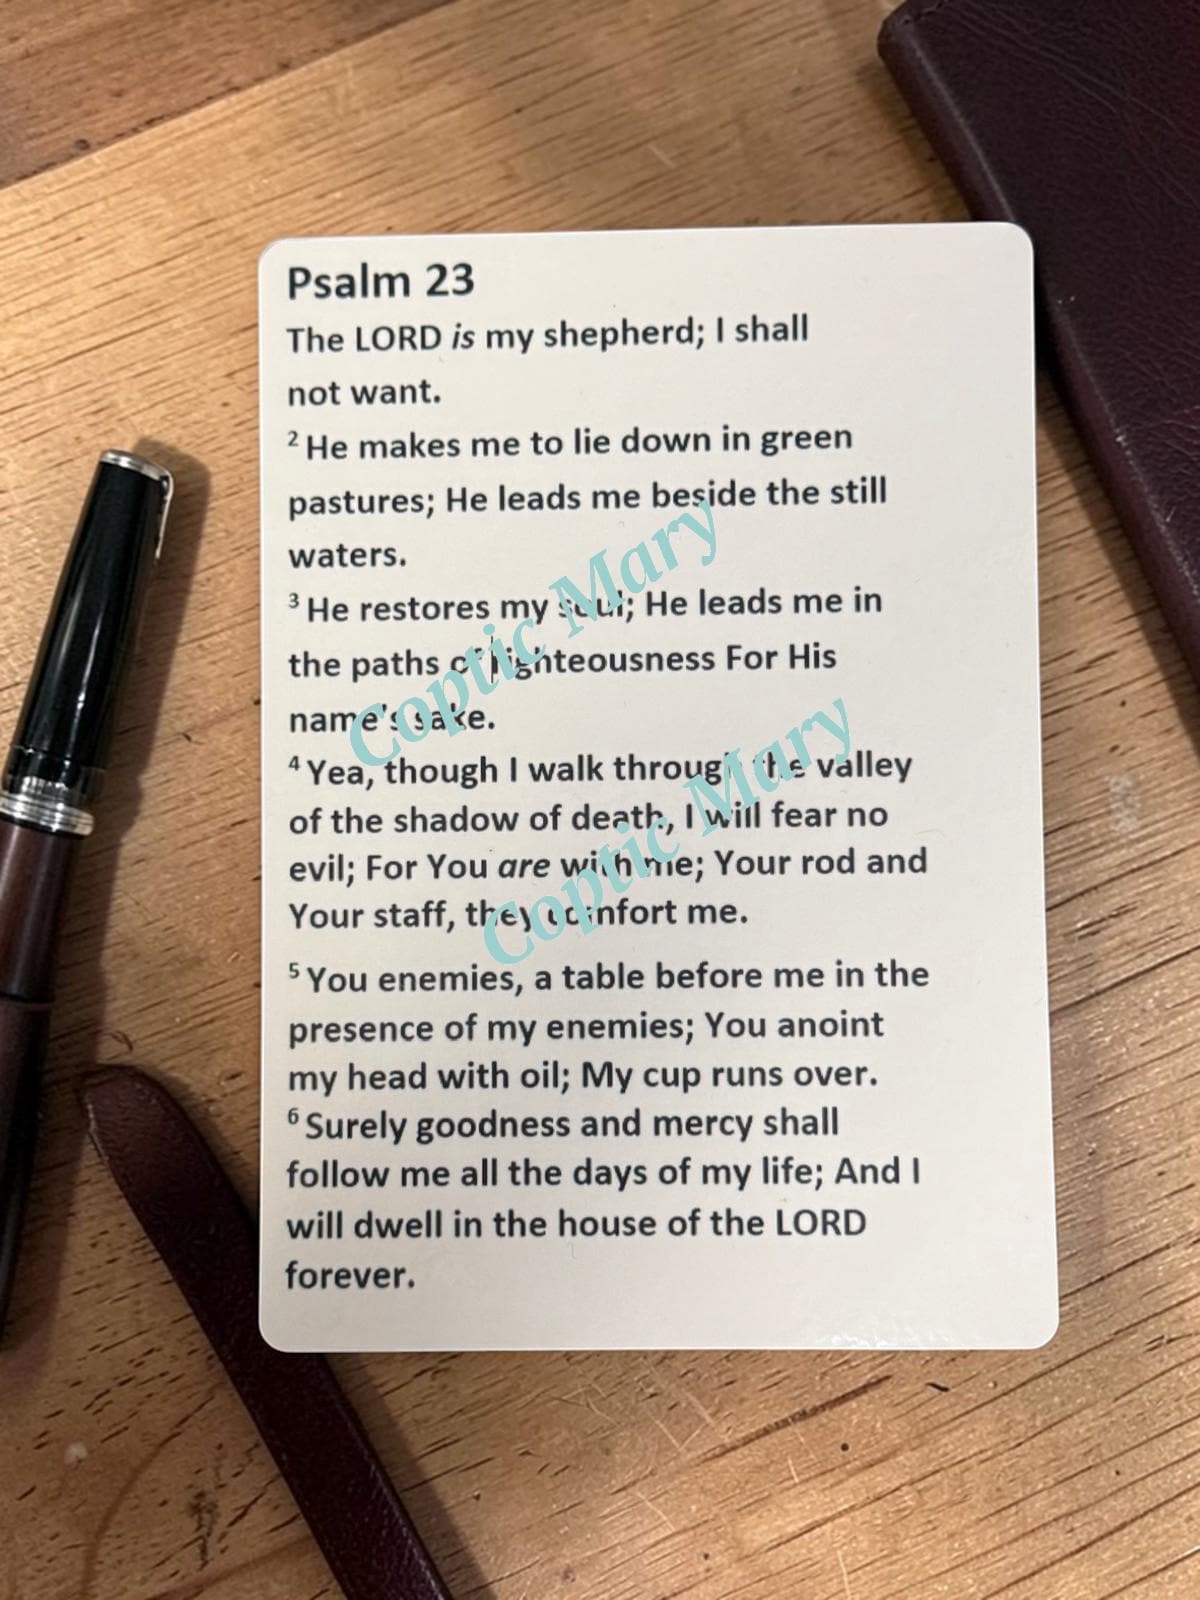 Psalm 23
The LORD is my shepherd; I shall
not want.
2 He makes me to lie down in green
pastures; He leads me beside the still
waters.
3 He restores my soul; He leads me in
the paths of righteousness For His
name's sake.
4 Yea, though I walk through the valley
of the shadow of death, I will fear no
evil; For You are with me; Your rod and
Your staff, they comfort me.
5 You enemies, a table before me in the
presence of my enemies; You anoint
my head with oil; My cup runs over.
6 Surely goodness and mercy shall
follow me all the days of my life; And I
will dwell in the house of the LORD
forever.
Coptic Mary
Coptic Mary